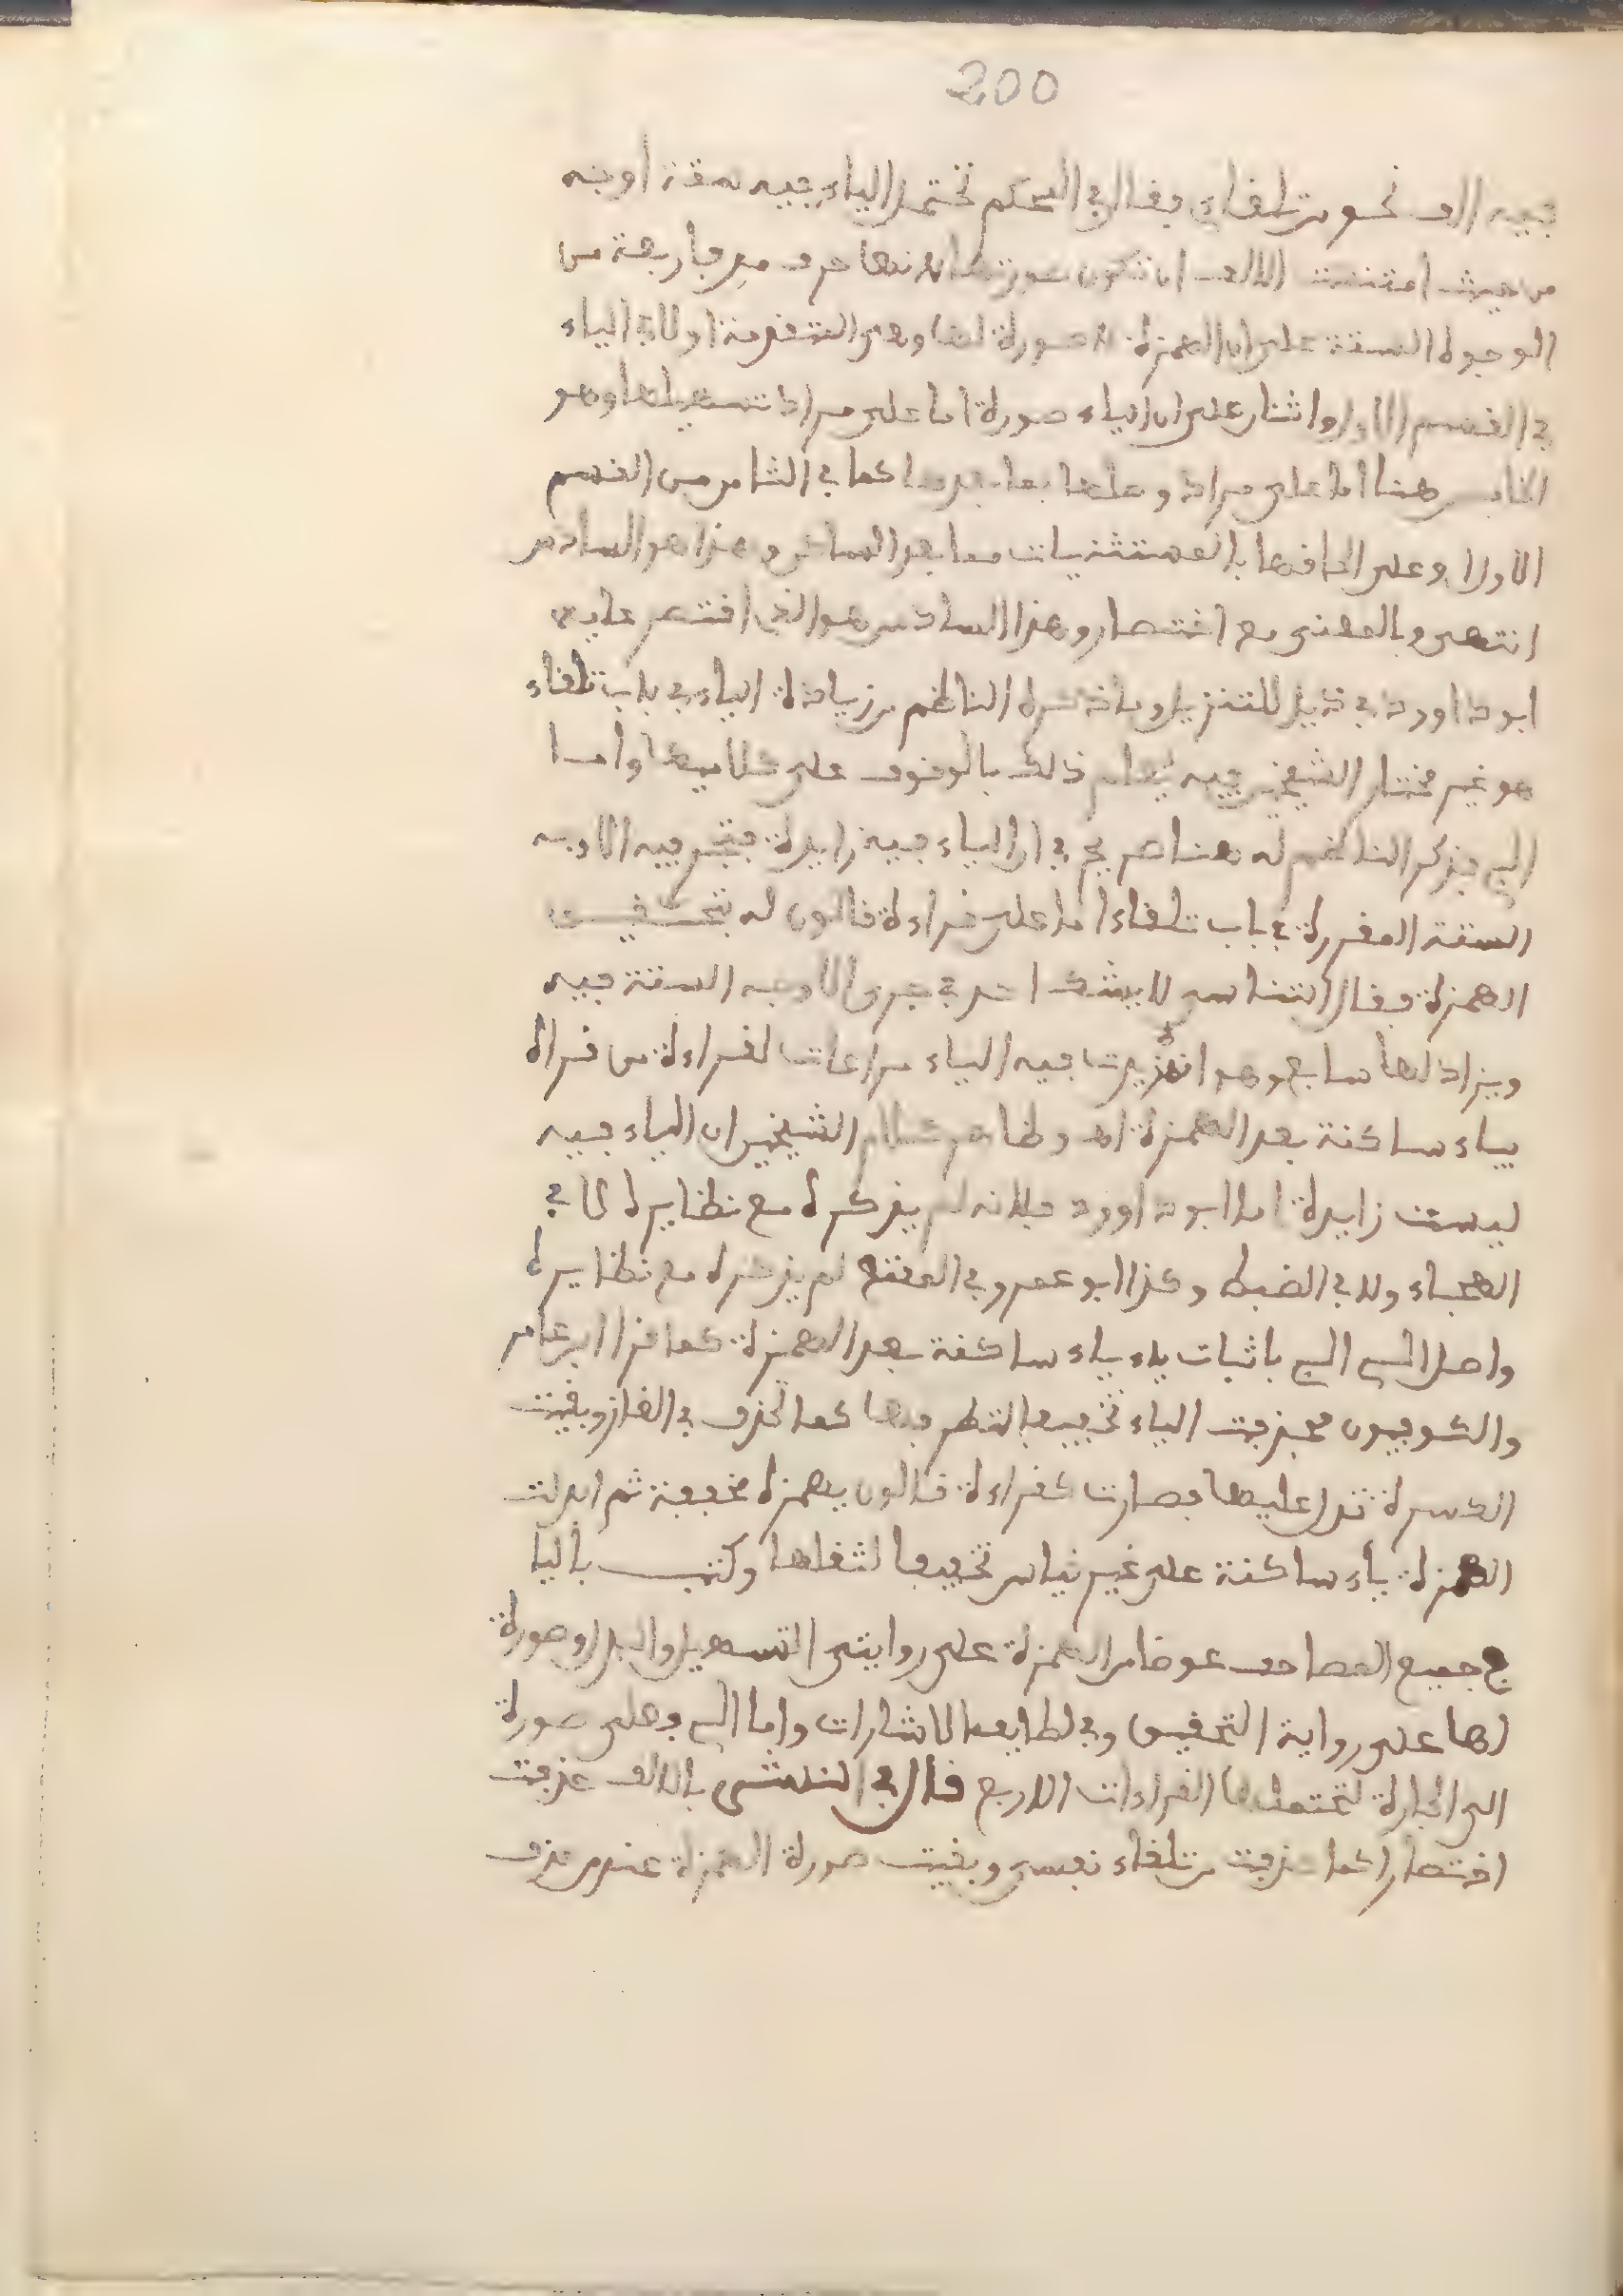 200
فيه الف نحو من تلقاءى فقال في المحكم تحتمل الياء فيه ستة اوجه
من حيث امتنعت الالف ان تكون صورتها لانها حرف مد فاربعة من
الوجوه الستة على ان الهمزة لا صورة لها وهي المتقدمة اولا في الياء
في القسم الاول واثنان على ان الياء صورة اما على مراد تسهيلها وهو
الخامس هنا اما على مراد وصلها بما بعدها كما في الثامن من القسم
الاول وعلى الحافها بالمستثنيات مما بعد الساكن وهذا هو السادس
انتهى بالمعنى مع اختصار وهذا السادس هو الذي اقتصر عليه
ابو داوود في ذيل التنزيل وما ذكره الناظم من زيادة الياء في باب تلقاء
هو غير مختار الشيخين فيه يعلم ذلك بالوقوف على كلاميهما واما
الى فذكر الناظم له هنا صريح في ان الياء فيه زايدة فتجر فيه الاوجه
الستة المقررة في باب تلقاء اما على قراءة قالون له بتحقيق
الهمزة فقال التناسى لا يشك احد في جرى الاوجه الستة فيه
ويزاد لها سابع وهو انه زيدت فيه الياء مراعات لقراءة من قراه
بياء ساكنة بعد الهمزة اهـ وظاهر كلام الشيخين ان الياء فيه
ليست زايدة اما ابو داوود فلانه لم يذكره مع نظايره لا في
الهجاء ولا في الضبط وكذا ابو عمرو في المقنع لم يذكره مع نظايره
واصل الى الى باثبات ياء ساكنة بعد الهمزة كما قرا ابن عامر
والكوفيون فحذفت الياء تخفيفا لتطرفها كما تحذف في الغاز وبقيت
الكسرة تدل عليها فصارت كقراءة قالون بهمزة محققة ثم ابدلت
الهمزة ياء ساكنة على غير قياس تخفيفا لثقلها وكتب باليا
في جميع المصاحف عوضا من الهمزة على روايتى التسهيل والبدل وصورة
لها على رواية التحقيق وفي لطايف الاشارات واما الى فعلى صورة
الى الجارة لتحتملها القراءات الاربع قال في بالالف حذفت
اختصارا كما حذفت من تلقاء نفسى وبقيت صورة الهمزة عند من حذف